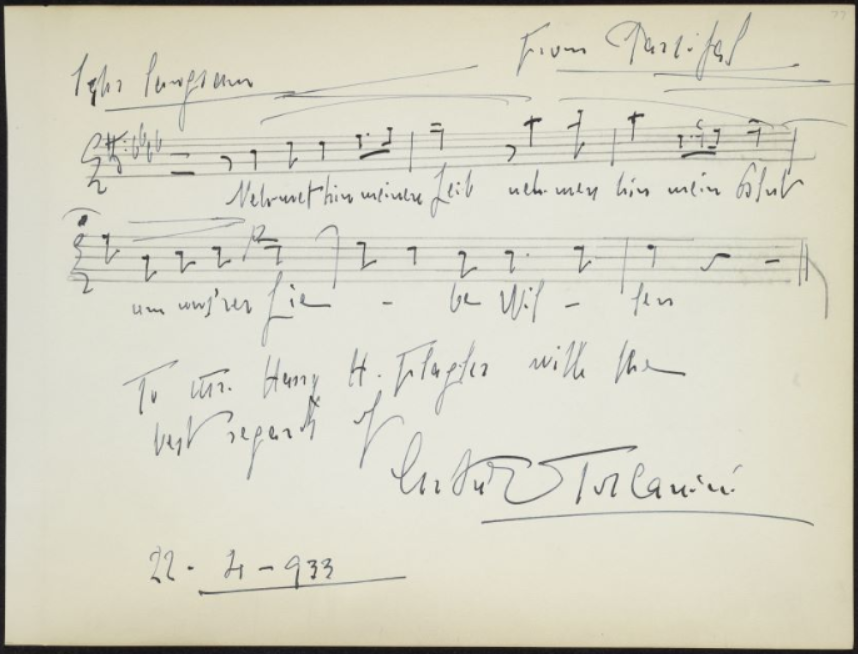 From Parsifal
Sehr langsam
Nehmet hin meinen Leib nehmet hin mein Blut
um uns'rer Lie - be Wil - len
To Mr. Harry H. Flagler with the
best regards of
Arturo Toscanini
22 - 4 - 933